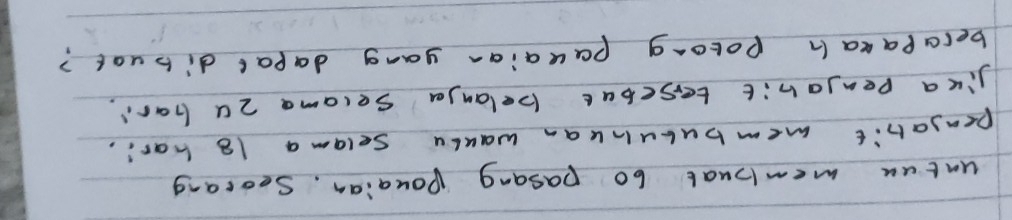 untuk membuat 60 pasang pakaian. Seorang
penjahit membutuhkan waktu selama 18 hari.
jika penjahit tersebut belanja selama 24 hari.
berapakah potong pakaian yang dapat dibuat?